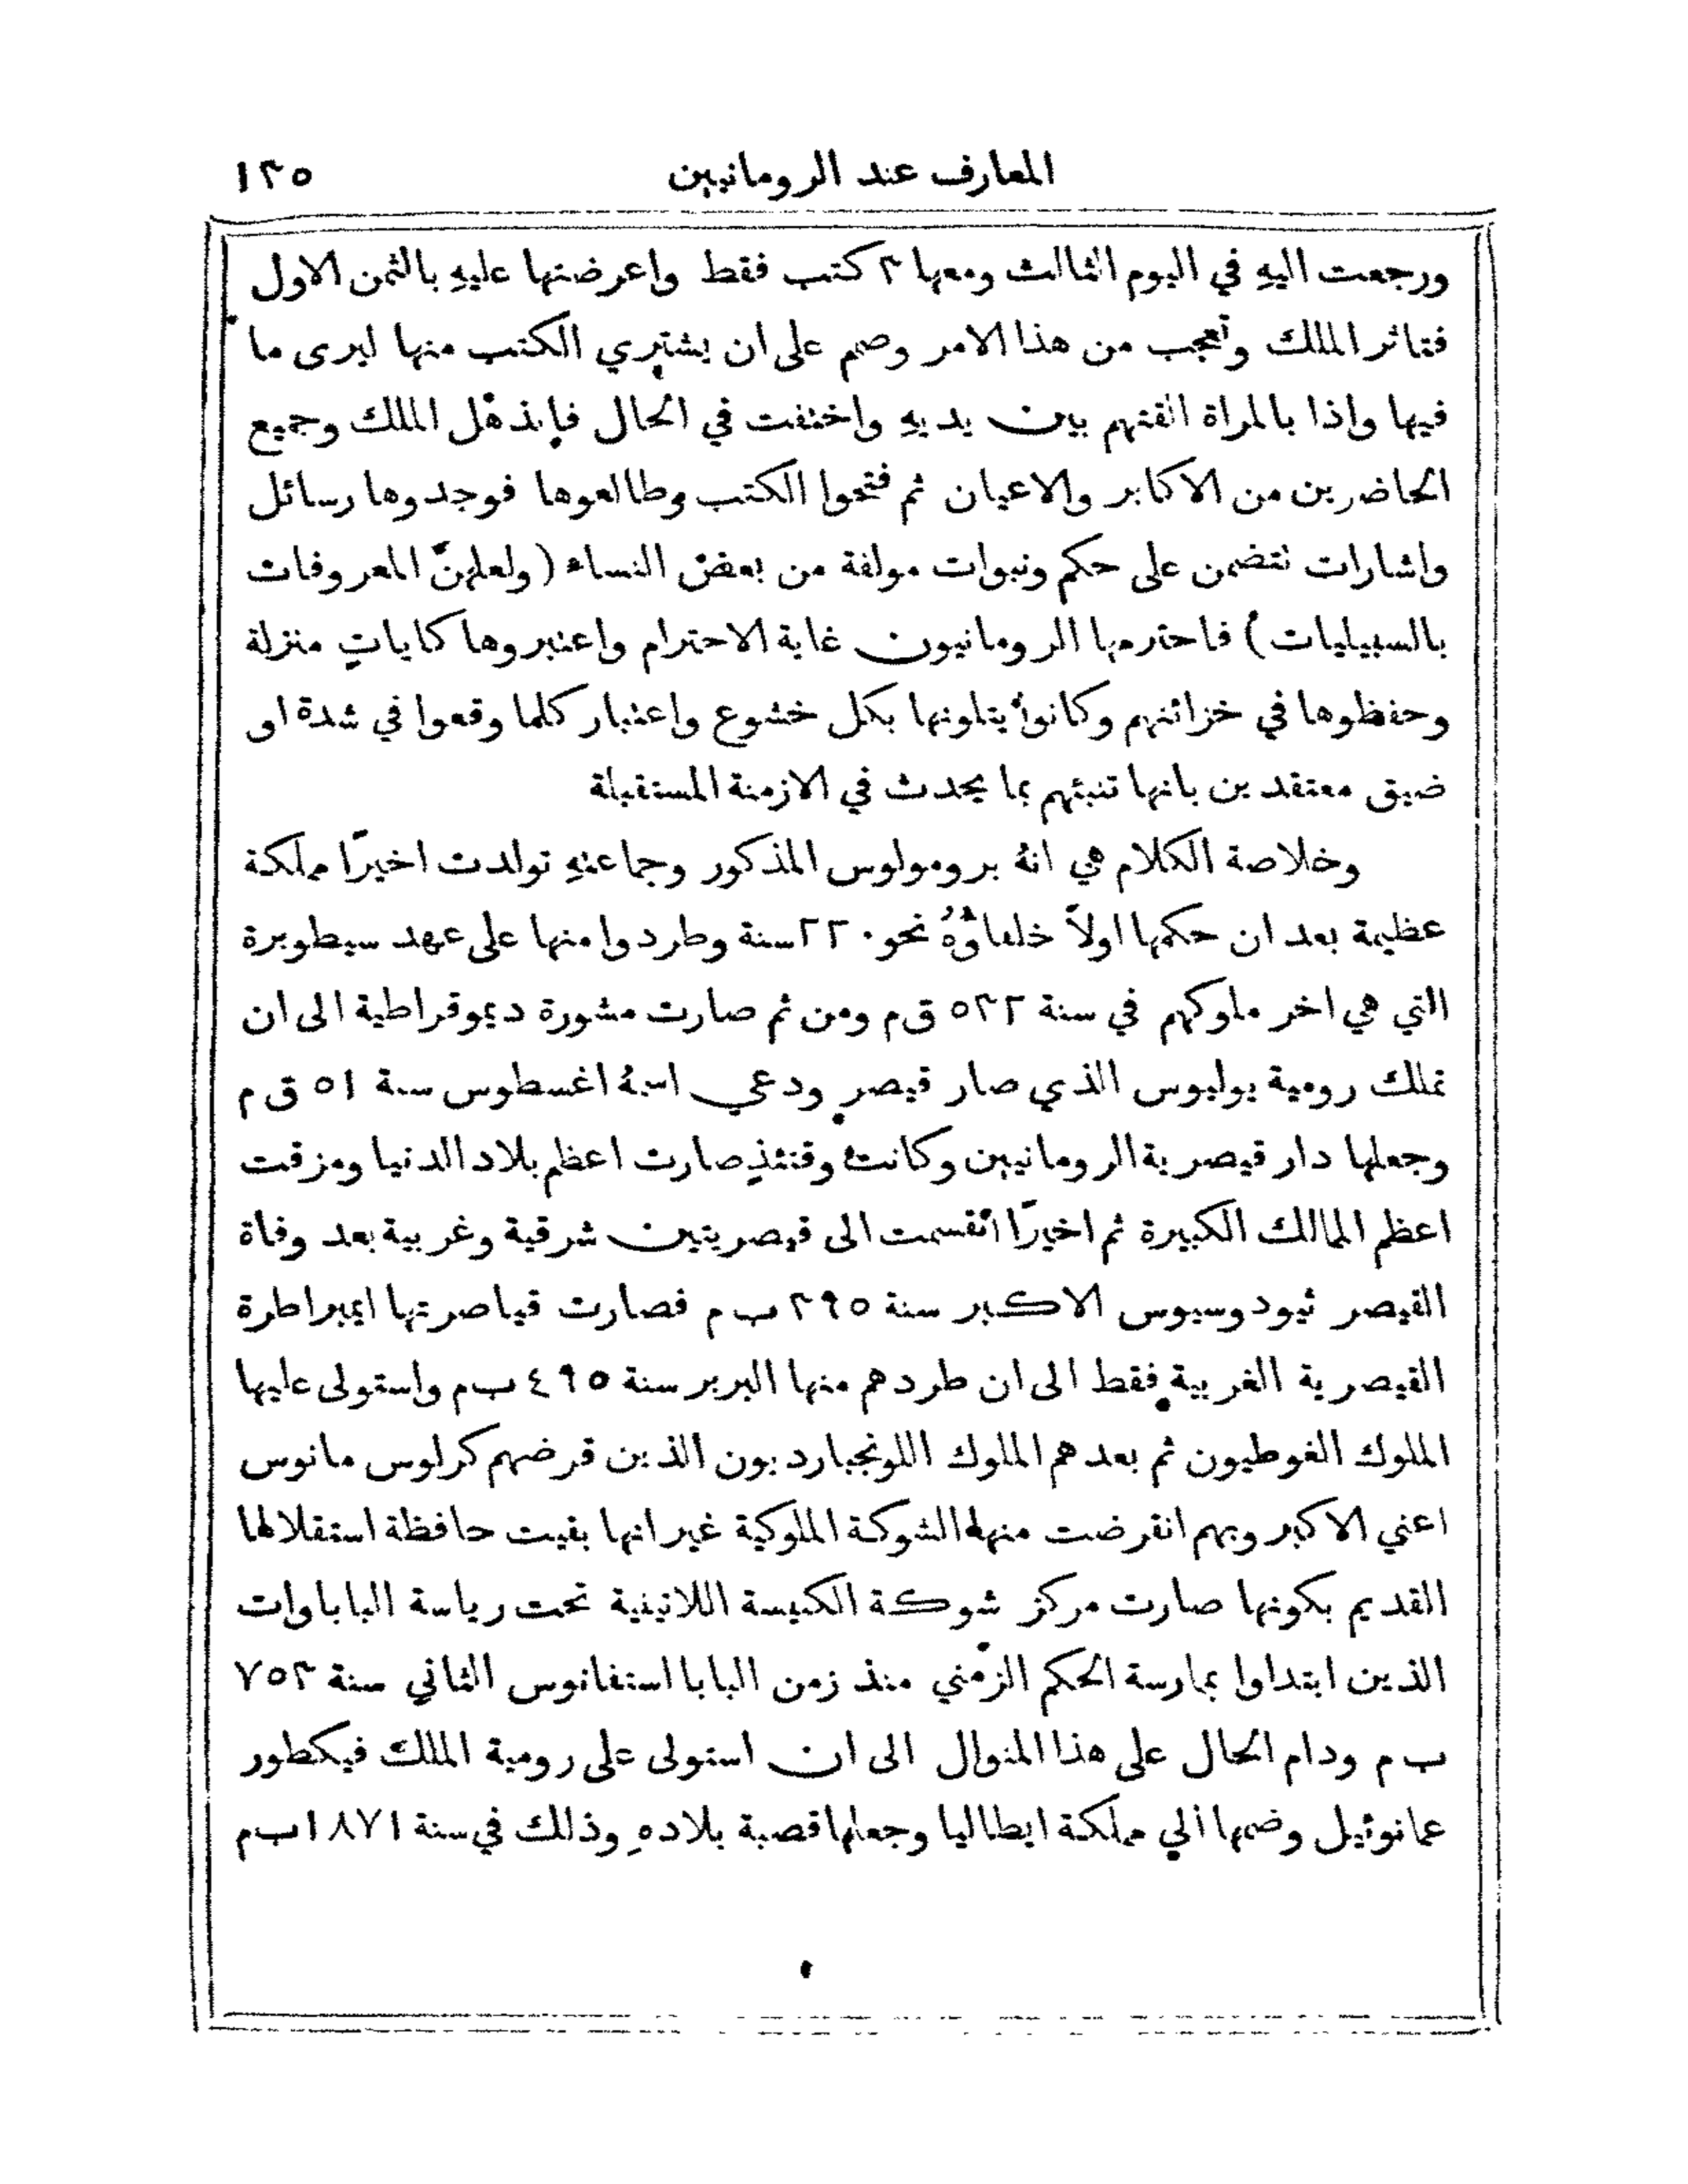 المعارف عند الرومانيين ١٣٥
ورجعت اليهِ في اليوم الثالث ومعها ٣ كتب فقط واعرضتها عليهِ بالثمن الاول
فتاثر الملك وتعجب من هذا الامر وصمم على ان يشتري الكتب منها ليرى ما
فيها واذا بالمراة القتهم بين يديهِ واختفت في الحال فانذهل الملك وجميع
الحاضرين من الاكابر والاعيان ثم فتحوا الكتب وطالعوها فوجدوها رسائل
واشارات تتضمن على حكم ونبوات مولفة من بعض النساء (ولعلهنَّ المعروفات
بالسبيليات) فاحترمها الرومانيون غاية الاحترام واعتبروها كاياتٍ منزلة
وحفظوها في خزائنهم وكانوا يتلونها بكل خشوع واعتبار كلما وقعوا في شدة او
ضيق معتقدين بانها تنبئهم بما يحدث في الازمنة المستقبلة
وخلاصة الكلام هي انهُ برومولوس المذكور وجماعتهِ تولدت اخيرًا مملكة
عظيمة بعد ان حكمها اولاً خلفاؤهُ نحو ٢٢٠ سنة وطردوا منها على عهد سيطوبرة
التي هي اخر ملوكهم في سنة ٥٣٢ ق م ومن ثم صارت مشورة ديموقراطية الى ان
تملك رومية يوليوس الذي صار قيصر ودعي اسمهُ اغسطوس سنة ٥١ ق م
وجعلها دار قيصرية الرومانيين وكانت وقتئذٍ صارت اعظم بلاد الدنيا ومزقت
اعظم الممالك الكبيرة ثم اخيرًا انقسمت الى قيصريتين شرقية وغربية بعد وفاة
القيصر ثيودوسيوس الاكبر سنة ٣٩٥ ب م فصارت قياصرتها ايمبراطرة
القيصرية الغربية فقط الى ان طردهم منها البربر سنة ٤٩٥ ب م واستولى عليها
الملوك الغوطيون ثم بعدهم الملوك اللونجبارديون الذين قرضهم كرلوس مانوس
اعني الاكبر وبهم انقرضت منها الشوكة الملوكية غير انها بقيت حافظة استقلالها
القديم بكونها صارت مركز شوكة الكنيسة اللاتينية تحت رياسة الباباوات
الذين ابتداوا بمارسة الحكم الزمني منذ زمن البابا استفانوس الثاني سنة ٧٥٣
ب م ودام الحال على هذا المنوال الى ان استولى على رومية الملك فيكطور
عمانوئيل وضمها الي مملكة ايطاليا وجعلها قصبة بلادهِ وذلك في سنة ١٨٧١ ب م